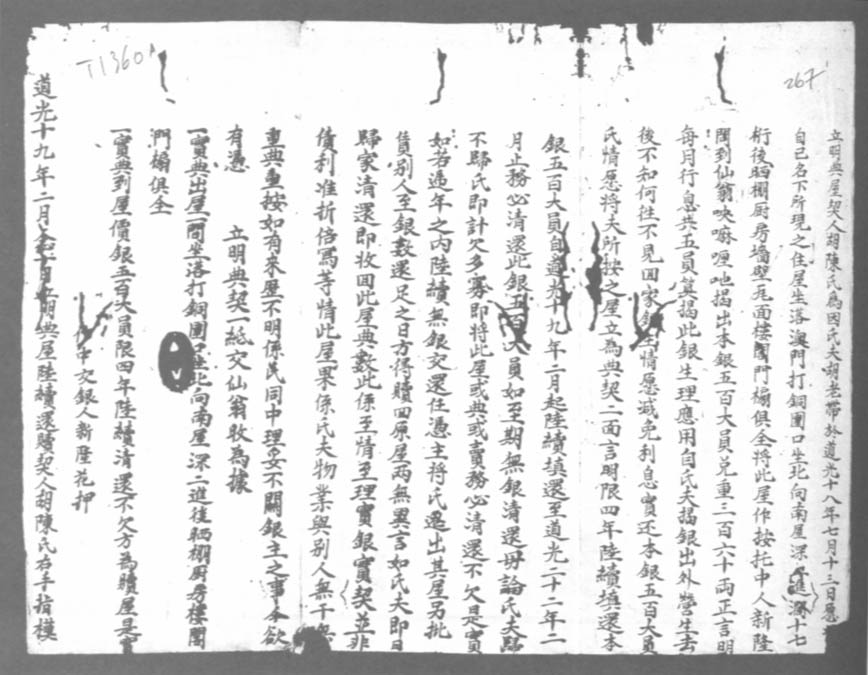 T1360
267
立明典屋契人胡陳氏為因氏夫胡老帶於道光十八年七月十三日愿
自己名下所現之住屋坐落澳門打銅圍口坐北向南屋深二進濶十七
桁後晒棚厨房墻壁瓦面樓閣門楄俱全將此屋作按托中人新隆
問到仙翁𠸄嘛喱吔揭出本銀五百大員兌重三百六十兩正言明
每月行息共五員算揭此銀生理應用自氏夫揭銀出外營生去
後不知何往不見回家銀主情愿減免利息實还本銀五百大員
氏情愿將夫所按之屋立為典契二面言明限四年陸續填還本
銀五百大員自道光十九年二月起陸續填還至道光二十二年二
月止務必清還此銀五百大員如至期無銀清還毋論氏夫歸
不歸氏即計欠多寡即將此屋或典或賣務必清還不欠是實
如若過年之內陸續無銀交還任憑主將氏遷出其屋另批
賃別人至銀數還足之日方得贖回原屋两無異言如氏夫即日
歸家清還即收回此屋典數此係至情至理實銀實契並非
債利准折倍寫等情此屋果係氏夫物業與別人無干無
重典重按如有來歷不明係氏同中理妥不關銀主之事今欲
有憑　立明典契一紙交仙翁收為據
一實典出屋一間坐落打銅圍口坐北向南屋深二進後晒棚厨房樓閣
門楄俱全
一實典到屋價銀五百大員限四年陸續清還不欠方為贖屋是實
中交銀人新隆花押
道光十九年二月　日立明典屋陸續還贖契人胡陳氏右手指模